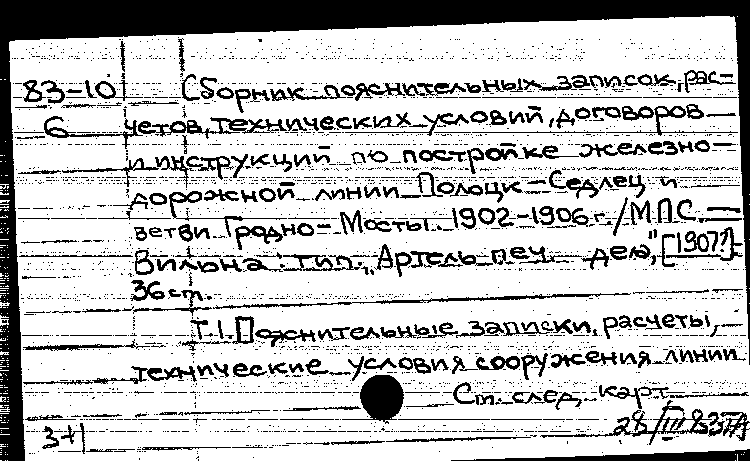 83-10 Сборник пояснительных записок, рас-
6 четов, технических условий, договоров
и инструкций по постройке железно-
дорожной линии Полоцк - Седлец и
ветви Гродно - Мосты. 1902-1906 г. / МПС. —
Вильна: тип. „Артель печ. дела", [1907?] -
36 см.
Т.1. Пояснительные записки, расчеты,
технические условия сооружения линии
См. след. карт.
3-1 28/III 83